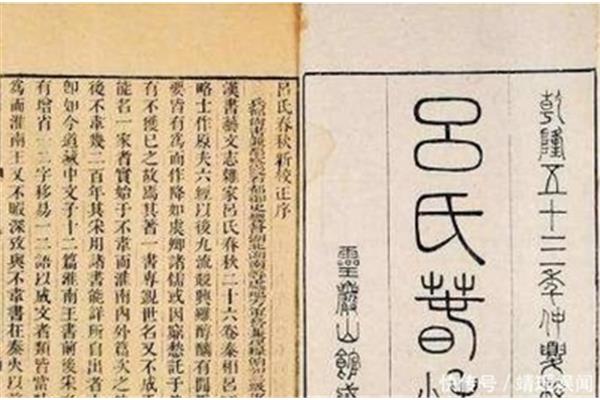 乾隆五十三年仲夏
呂氏春秋
靈巖山館
呂氏春秋新校正序
漢書藝文志雜家呂氏春秋二十六卷秦相呂
略士作原夫六經以後九流競興雖醇醨有閒
要皆有爲而作降如虞卿諸儒或因窮愁託于
有不獲已之故焉其著一書專覬世名又不成
能名一家者實始于不韋而淮南內外篇次之
後不韋幾二百年其采用諸書能詳所自出者
卽如今道藏中文子十二篇淮南王書前後采
有增省一二字移易一二語以成文者類皆當
爲而淮南王又不暇深攷與不韋書在秦火以
快传号